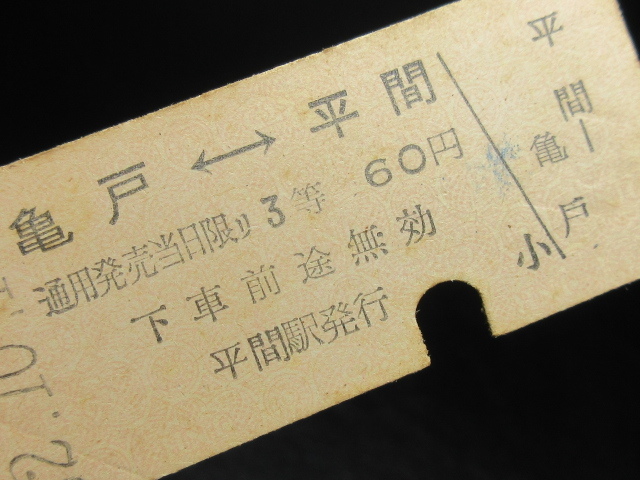 亀戸↔平間
通用発売当日限り 3等 60円
下車前途無効
平間駅発行
平間─亀戸
小